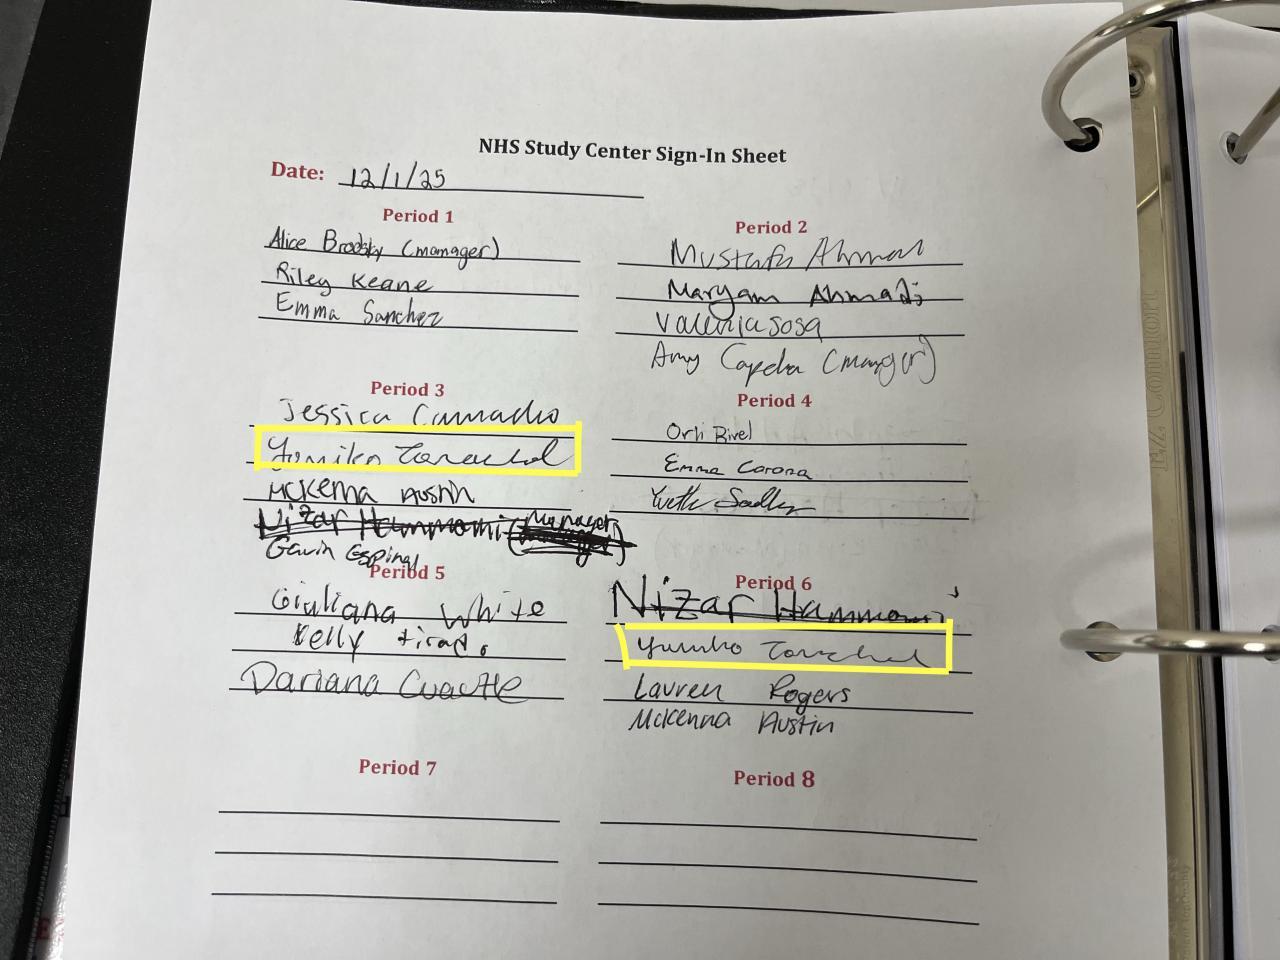 NHS Study Center Sign-In Sheet
Date: 12/1/25
Period 1
Alice Brodsky (manager)
Riley Keane
Emma Sanchez
Period 2
Mustafa Ahmad
Maryam Ahmadi
Valeria Sosa
Amy (manger)
Period 3
Jessica Camacho
Yumiko
McKenna Austin
Nizar Hammami (Manager)
Gavin Espinal
Period 4
Orli Bivel
Emma Corona
Yvette
Period 5
Giuliana White
Kelly Tirado
Dariana Cuautle
Period 6
Nizar Hammami
Yumiko
Lauren Rogers
McKenna Austin
Period 7
Period 8